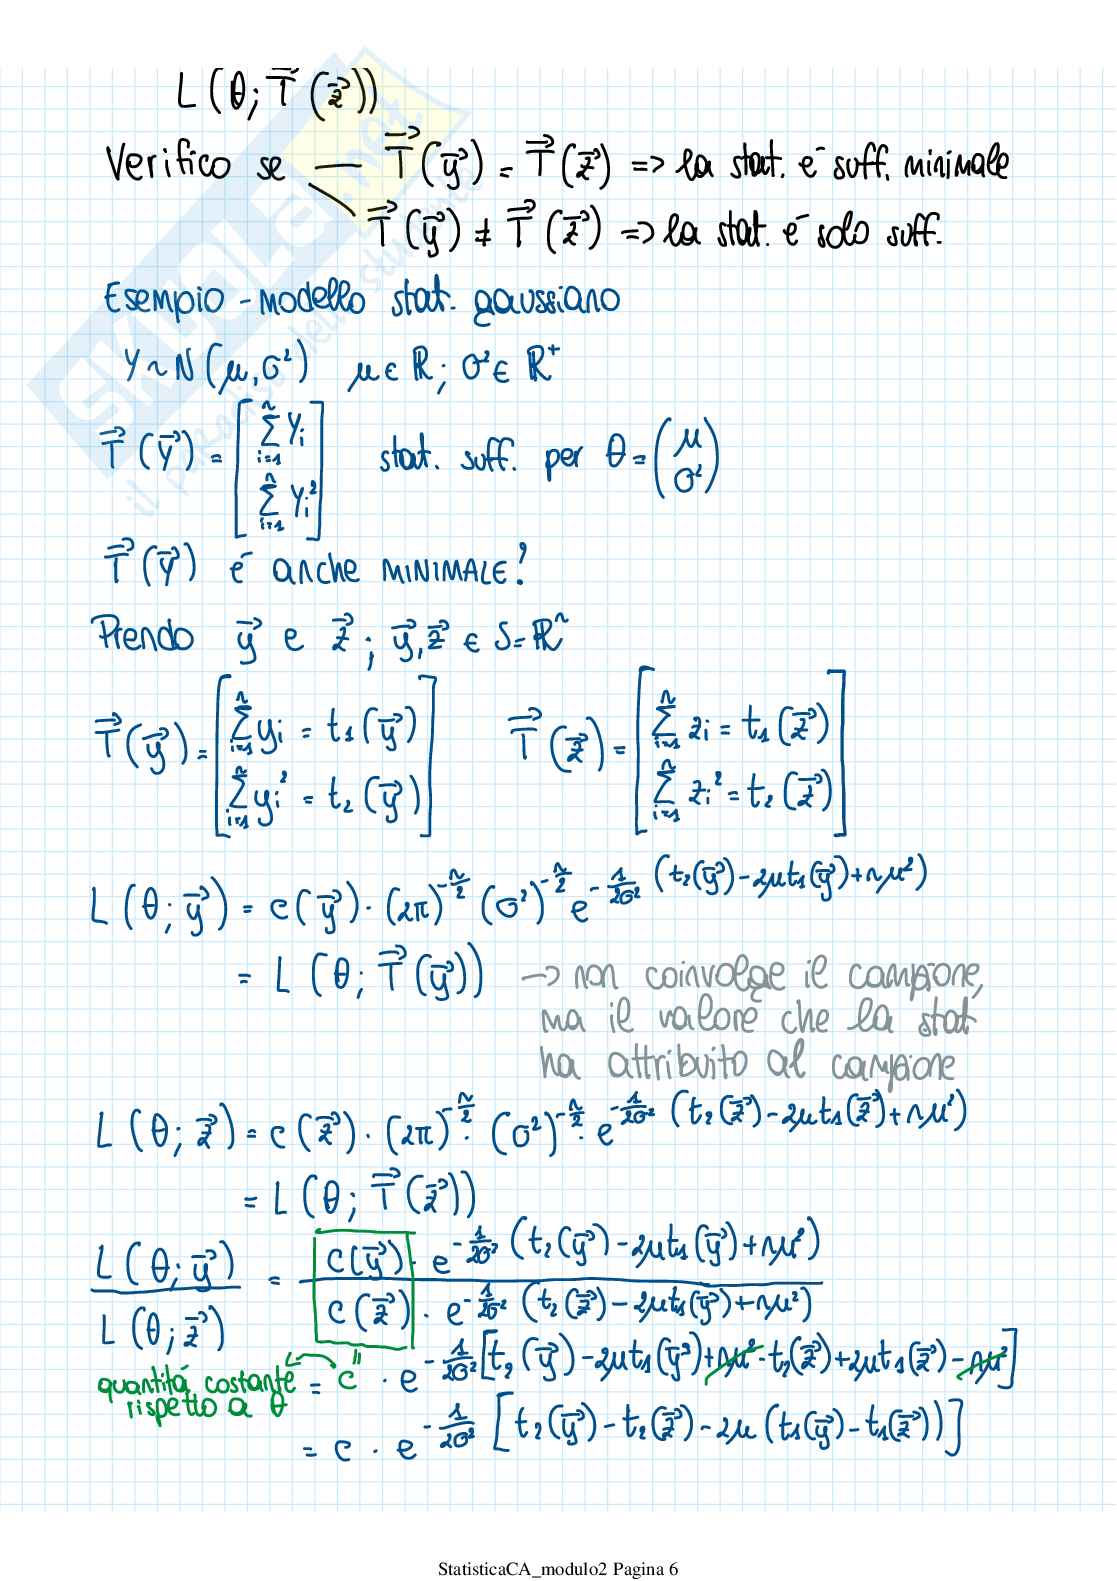 L(θ; T⃗(z⃗))
Verifico se — T⃗(y⃗) = T⃗(z⃗) => la stat. é suff. minimale
T⃗(y⃗) ≠ T⃗(z⃗) => la stat. é solo suff.
Esempio - modello stat. gaussiano
Y ~ N(μ, σ²) μ ∈ ℝ; σ² ∈ ℝ⁺
T⃗(Y⃗) = [∑ᵢ₌₁ⁿ Yᵢ ; ∑ᵢ₌₁ⁿ Yᵢ²] stat. suff. per θ = (μ ; σ²)
T⃗(Y⃗) é anche MINIMALE?
Prendo y⃗ e z⃗; y⃗, z⃗ ∈ S = ℝⁿ
T⃗(y⃗) = [∑ᵢ₌₁ⁿ yᵢ = t₁(y⃗) ; ∑ᵢ₌₁ⁿ yᵢ² = t₂(y⃗)] T⃗(z⃗) = [∑ᵢ₌₁ⁿ zᵢ = t₁(z⃗) ; ∑ᵢ₌₁ⁿ zᵢ² = t₂(z⃗)]
L(θ; y⃗) = c(y⃗) · (2π)^(-n/2) (σ²)^(-n/2) e^(-1/2σ² (t₂(y⃗) - 2μt₁(y⃗) + nμ²))
= L(θ; T⃗(y⃗)) → non coinvolge il campione,
ma il valore che la stat
ha attribuito al campione
L(θ; z⃗) = c(z⃗) · (2π)^(-n/2) · (σ²)^(-n/2) · e^(-1/2σ² (t₂(z⃗) - 2μt₁(z⃗) + nμ²))
= L(θ; T⃗(z⃗))
L(θ; y⃗) / L(θ; z⃗) = c(y⃗) · e^(-1/2σ² (t₂(y⃗) - 2μt₁(y⃗) + nμ²)) / c(z⃗) · e^(-1/2σ² (t₂(z⃗) - 2μt₁(y⃗) + nμ²))
quantitá costante rispetto a θ ← = c · e^(-1/2σ² [t₂(y⃗) - 2μt₁(y⃗) + nμ² - t₂(z⃗) + 2μt₁(z⃗) - nμ²])
= c · e^(-1/2σ² [t₂(y⃗) - t₂(z⃗) - 2μ(t₁(y⃗) - t₁(z⃗))])
StatisticaCA_modulo2 Pagina 6